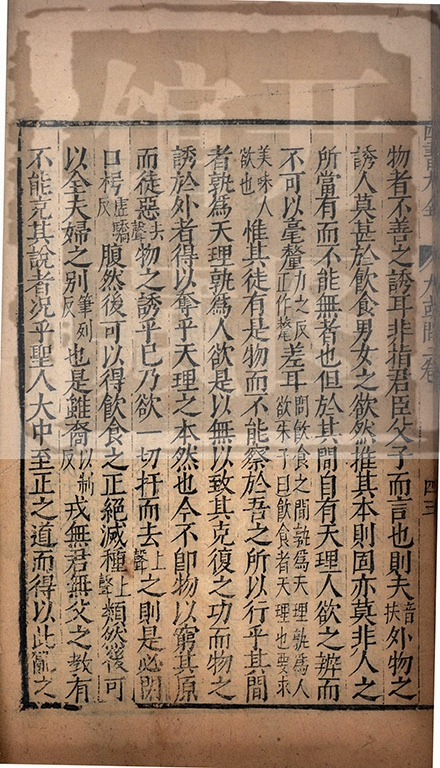 物者不善之誘耳非指君臣父子而言也則夫音扶外物之
誘人莫甚於飲食男女之欲然推其本則固亦莫非人之
所當有而不能無者也但於其間自有天理人欲之辨而
不可以毫釐力之反正作氂差耳問飲食之間孰爲天理孰爲人欲朱子曰飲食者天理也要求
美味人欲也惟其徒有是物而不能察於吾之所以行乎其間
者孰爲天理孰爲人欲是以無以致其克復之功而物之
誘於外者得以奪乎天理之本然也今不即物以窮其原
而徒惡去聲物之誘乎己乃欲一切扞而去上聲之則是必閉
口枵虛驕反腹然後可以得飲食之正絕滅種上聲類然後可
以全夫婦之別筆列反也是雖裔以制反戎無君無父之教有
不能充其說者況乎聖人大中至正之道而得以此亂之
四書大全
大學或問
四三